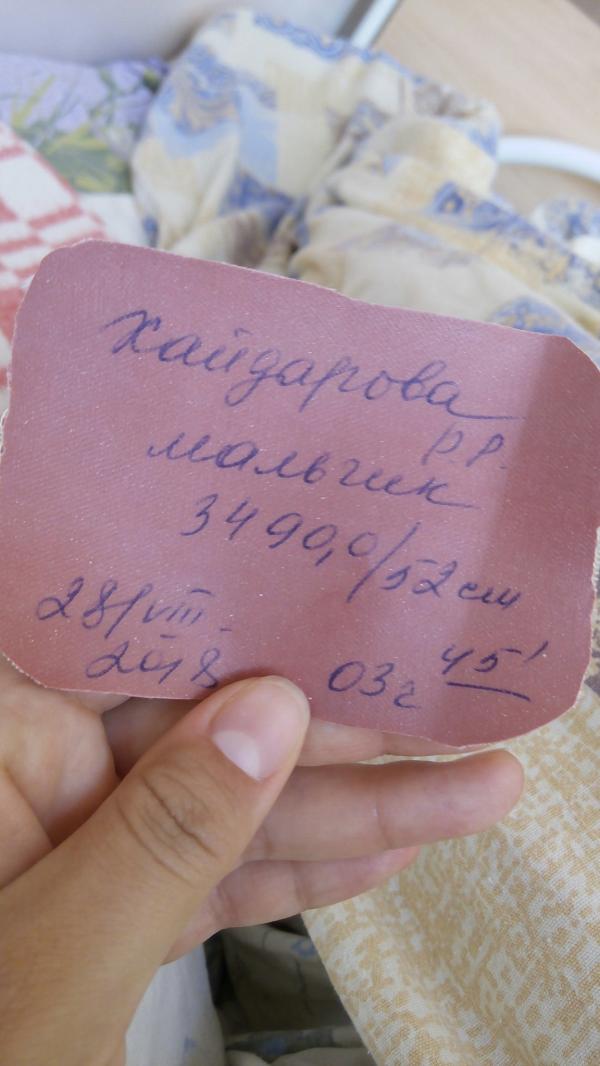 Хайдарова
Р.Р.
мальчик
3490,0/52 см
28/VIII.
2018 03г 45'